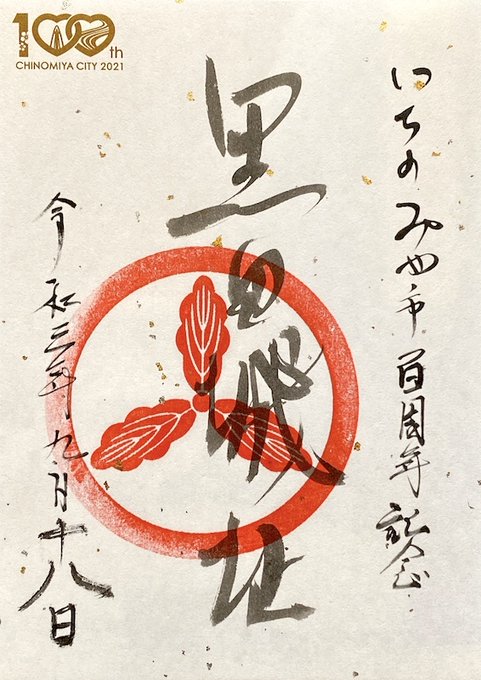 100th
CHINOMIYA CITY 2021
いちのみや市百周年記念
黒田城址
令和三年九月十八日